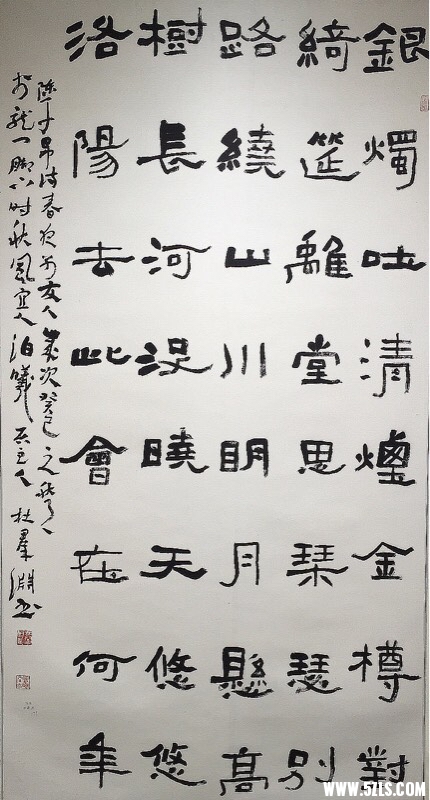 銀燭吐清煙金樽對
綺筵離堂思琹瑟別
路繞山川明月懸高
樹長河没曉天悠悠
洛陽去此會在何年
陳子昂詩春夜別友人歲次癸巳之
时秋風宜人泊主人杜羣淵书
WWW.5ZLS.COM